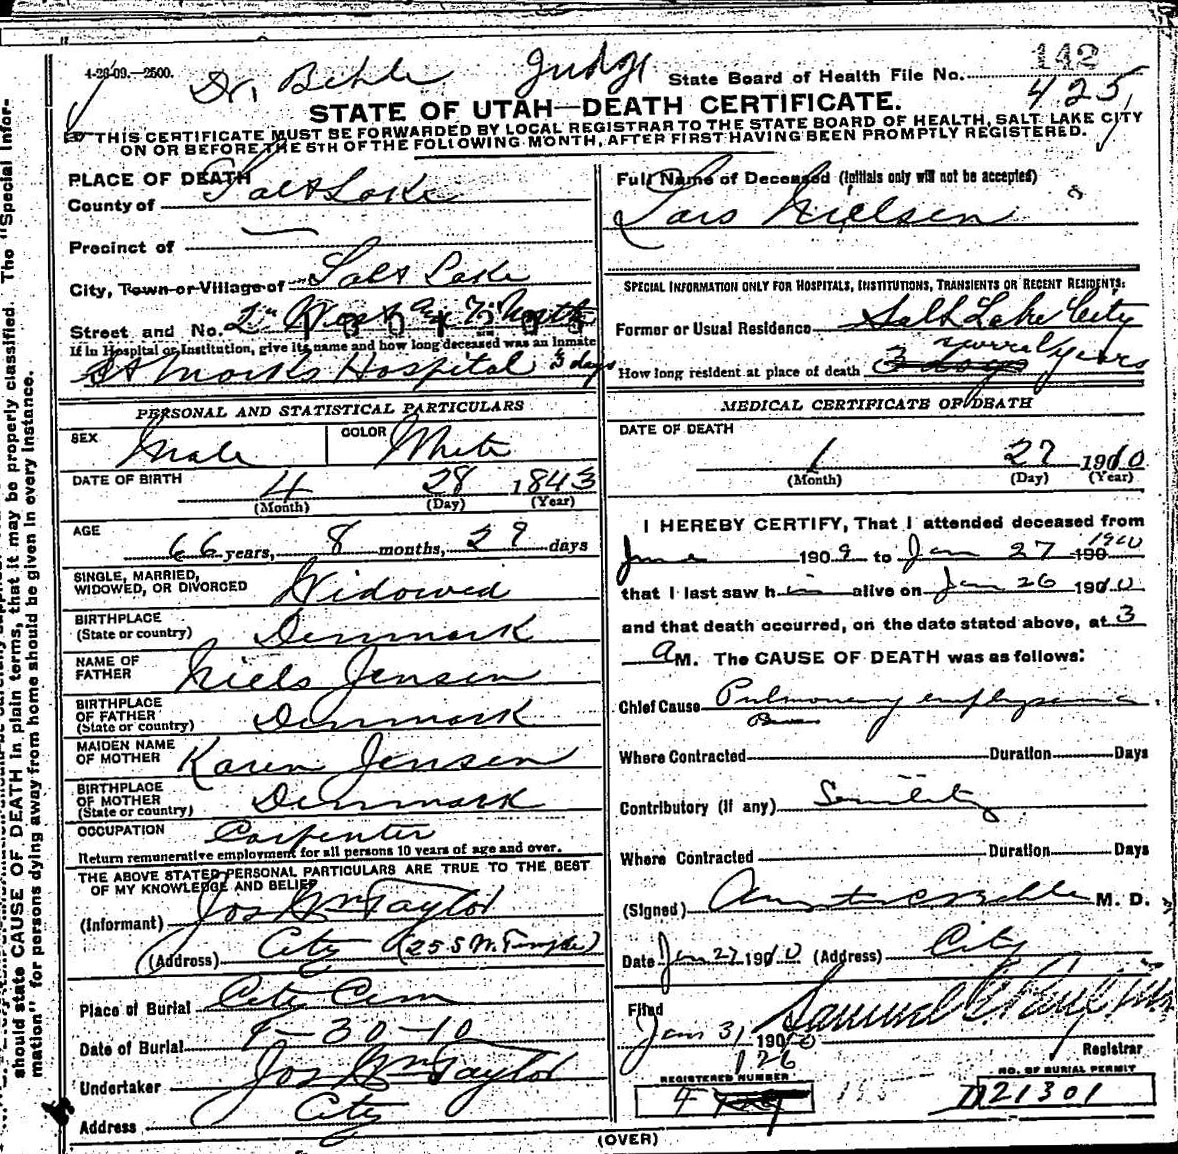 142
4-26-09.—2500. Dr. Behle Judge State Board of Health File No. 425
STATE OF UTAH—DEATH CERTIFICATE.
THIS CERTIFICATE MUST BE FORWARDED BY LOCAL REGISTRAR TO THE STATE BOARD OF HEALTH, SALT LAKE CITY
ON OR BEFORE THE 5TH OF THE FOLLOWING MONTH, AFTER FIRST HAVING BEEN PROMPTLY REGISTERED.
PLACE OF DEATH
County of Salt Lake
Precinct of —
City, Town or Village of Salt Lake
Street and No. 2nd West & 7 North
If in Hospital or Institution, give its name and how long deceased was an inmate
St Marks Hospital 3 days
PERSONAL AND STATISTICAL PARTICULARS
SEX Male COLOR White
DATE OF BIRTH 4 28 1843
(Month) (Day) (Year)
AGE 66 years, 8 months, 29 days
SINGLE, MARRIED,
WIDOWED, OR DIVORCED Widowed
BIRTHPLACE
(State or country) Denmark
NAME OF
FATHER Niels Jensen
BIRTHPLACE
OF FATHER
(State or country) Denmark
MAIDEN NAME
OF MOTHER Karen Jensen
BIRTHPLACE
OF MOTHER
(State or country) Denmark
OCCUPATION Carpenter
Return remunerative employment for all persons 10 years of age and over.
THE ABOVE STATED PERSONAL PARTICULARS ARE TRUE TO THE BEST
OF MY KNOWLEDGE AND BELIEF
(Informant) Jos Wm Taylor
(Address) City (25 S W. Temple)
Place of Burial City Cem
Date of Burial 1-30-10
Undertaker Jos Wm Taylor
Address City
Full Name of Deceased (Initials only will not be accepted)
Lars Nielsen
SPECIAL INFORMATION ONLY FOR HOSPITALS, INSTITUTIONS, TRANSIENTS OR RECENT RESIDENTS:
Former or Usual Residence Salt Lake City
How long resident at place of death 3 days several years
MEDICAL CERTIFICATE OF DEATH
DATE OF DEATH
1 27 1910
(Month) (Day) (Year)
I HEREBY CERTIFY, That I attended deceased from
June 1909 to Jan 27 190 1910
that I last saw him alive on Jan 26 1910
and that death occurred, on the date stated above, at 3
a M. The CAUSE OF DEATH was as follows:
Chief Cause Pulmonary emphysema
Where Contracted Duration Days
Contributory (if any) Senility
Where Contracted Duration Days
(Signed) M. D.
Date Jan 27 1910 (Address) City
Filed
Jan 31, 1910 Samuel G. Paul M.D.
Registrar
126
REGISTERED NUMBER
NO. OF BURIAL PERMIT
D21301
(OVER)
should state CAUSE OF DEATH in plain terms, that it may be properly classified. The "Special Infor-
mation" for persons dying away from home should be given in every instance.